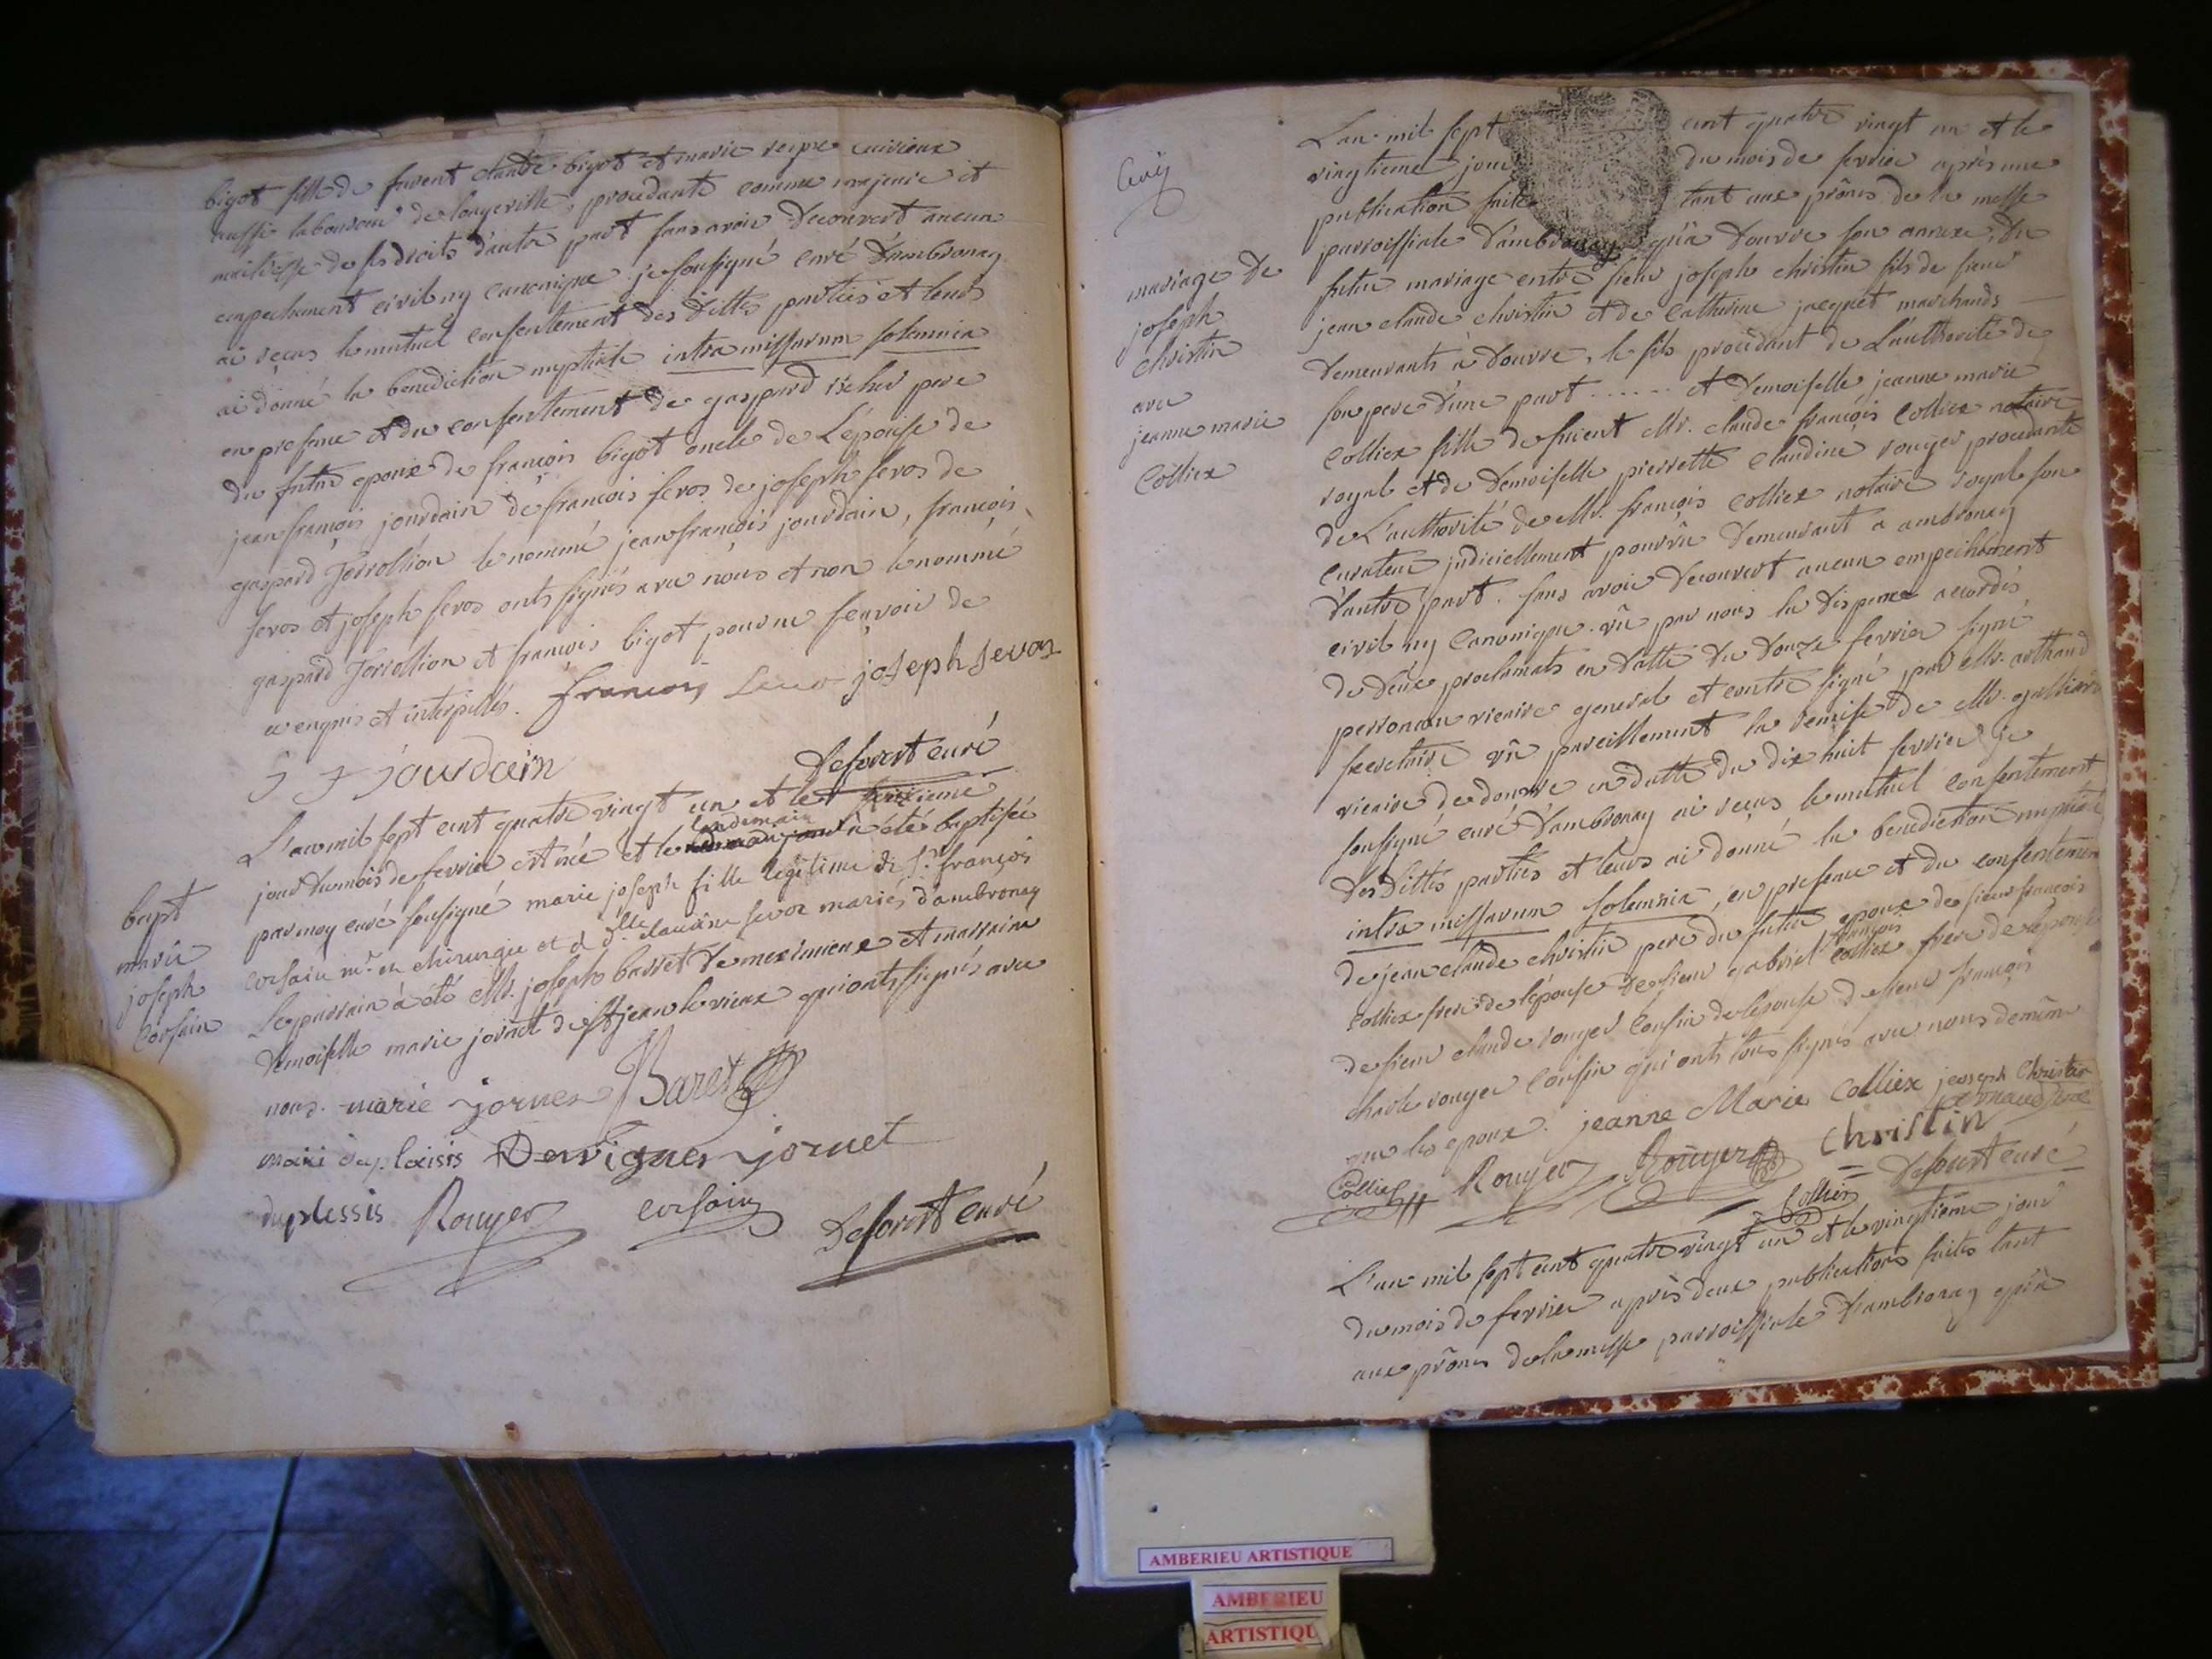 bigot fille de fuient claude bigot et marie reype vivieux
aussi laboureur de longeville, procedante comme majeure et
maitresse de ses droits d'autre part sans avoir decouvert aucun
empechement civil ny canonique je soussigné curé d'ambronay
ai reçus le mutuel consentement des dittes parties et leurs
ai donné la benediction nuptiale intra missarum solemnia
en presence et du consentement de gaspard pere
du futur epoux de françois bigot oncle de L'épouse de
jean françois jourdain de francois sevos de joseph sevos de
gaspard Jerrollion le nommé jean françois jourdain, françois
sevos et joseph sevos onts signés avec nous et non le nommé
gaspard Jerrollion et françois bigot pour ne sçavoir de
ce enquis et interpellés. françois joseph sevos
J F jourdain Deforest curé
L'an mil sept cent quatre vingt un et le seizieme
jour du mois de fevrier est née et le lendemain à été baptisée
bapt
marie
joseph
Corsain
par moy curé soussigné marie joseph fille legitime de Sr. françois
corsain mr. en chirurgie et de dlle. claudine sevoz mariés d'ambronay
Le parrain à été Mr. joseph barret de meximieux et marraine
demoiselle marie jornet de St jean le vieux qui onts signés avec
nous. marie jornet Baret
duplaisis Dervignes jornet
duplessis Rouyer corsain Deforest curé
mariage de
joseph
christin
avec
jeanne marie
Colliex
L'an mil sept cent quatre vingt un et le
vingtieme jour du mois de fevrier après une
publication faite tant aux prônes de la messe
parroissiale d'ambronay qu'à douvre son annexe, du
futur mariage entre sieur joseph christin fils de sieur
jean claude christin et de Catherine jacquet marchands
demeurants à douvre, le fils procedant de L'authorité de
son pere d'une part ...... et demoiselle jeanne marie
Colliex fille de fuient Mr. claude françois Colliex notaire
royal et de demoiselle pierrette claudine rouyer procedante
de L'authorité de Mr. françois Colliex notaire royal son
curateur judiciellement pourvû demeurant a ambronay
d'autre part. sans avoir decouvert aucun empeichement
civil ny Canonique. vû par nous la dispence accordée
de deux proclamats en datte du douze fevrier signé
perronan vicaire general et contre signé par Mr. arthaud
secretaire vû pareillement la remise de Mr. galliard
vicaire de douvre en datte du dix huit fevrier je
soussigné curé d'ambronay ai reçus le mutuel consentement
des dittes parties et leurs ai donné la benediction nuptiale
intra missarum solemnia, en presence et du consentement
de jean claude christin pere du futur epoux de sieur francois
Colliex frere de lépouse de sieur gabriel françois Colliex frere de lepouse
de sieur claude rouyer Cousin de lépouse de sieur françois
charle rouyer Cousin qui onts tous signés avec nous de même
que les epoux. jeanne Marie Colliex joseph Christin
Colliex Rouyer Rouyer Christin
Colliex Deforest curé
L'an mil sept cent quatre vingt un et le vingtieme jour
du mois de fevrier après deux publications faites tant
aux prônes de la messe parroissiale d'ambronay qu'à
AMBERIEU ARTISTIQUE
AMBERIEU
ARTISTIQU